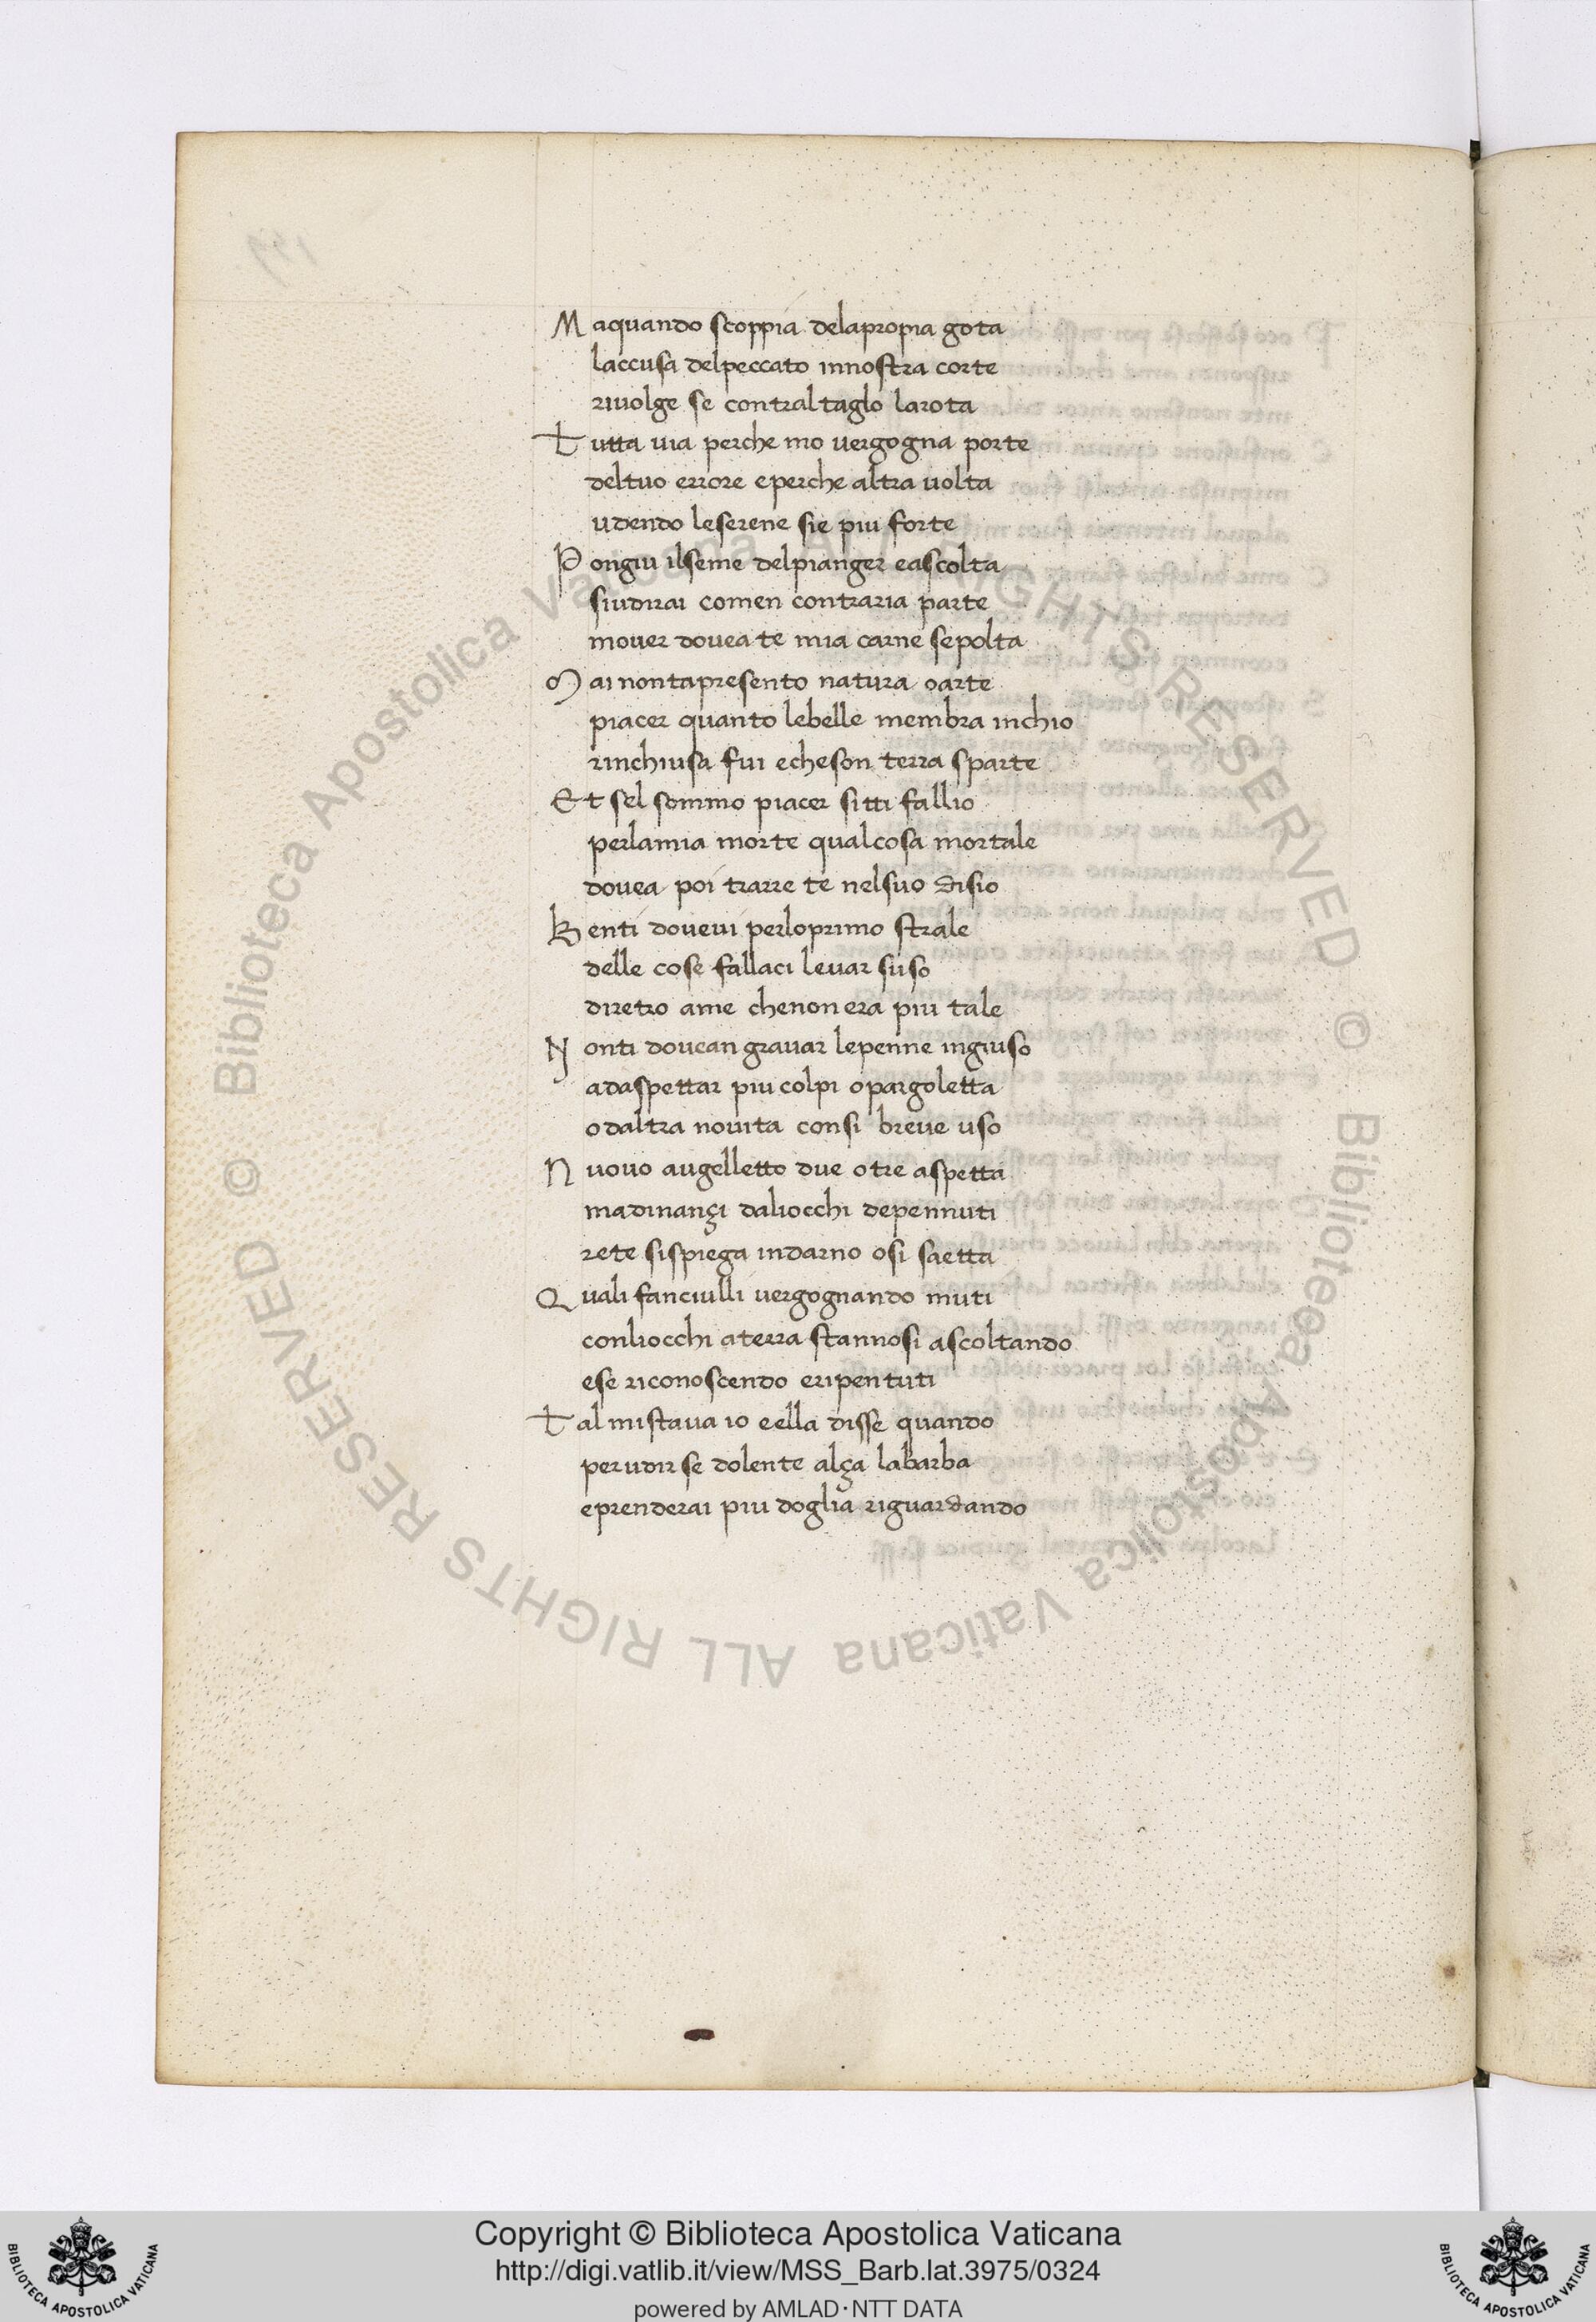 Maquando scoppia delapropia gota
laccusa delpeccato innostra corte
rivolge se contral taglo larota
Tutta via perche mo vergogna porte
deltuo errore eperche altra volta
udendo leserene sie piu forte
Pongiu ilseme delpianger eascolta
siudirai comen contraria parte
mover dovea te mia carne sepolta
Mai nontapresento natura oarte
piacer quanto lebelle membra inchio
rinchiusa fui echeson terra sparte
Et sel sommo piacer sitti fallio
perlamia morte qualcosa mortale
dovea poi trarre te nelsuo disio
Benti dovevi perloprimo strale
delle cose fallaci levar suso
diretro ame chenon era piu tale
Nonti dovean gravar lepenne ingiuso
adaspettar piu colpi opargoletta
odaltra novita consi breve uso
Nuovo augelletto due otre aspetta
madinançi daliocchi depennuti
rete sispiega indarno osi saetta
Quali fanciulli vergognando muti
conliocchi aterra stannosi ascoltando
ese riconoscendo eripentuti
Tal mistava io eella disse quando
perudir se dolente alça labarba
eprenderai piu doglia riguardando
Copyright © Biblioteca Apostolica Vaticana
http://digi.vatlib.it/view/MSS_Barb.lat.3975/0324
powered by AMLAD·NTT DATA
BIBLIOTECA APOSTOLICA VATICANA
BIBLIOTECA APOSTOLICA VATICANA
© Biblioteca Apostolica Vaticana ALL RIGHTS RESERVED © Biblioteca Apostolica Vaticana ALL RIGHTS RESERVED